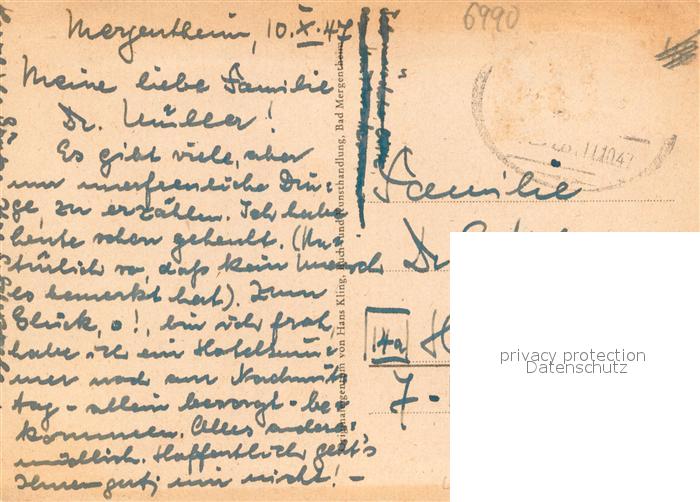 Mergentheim, 10.X.47
Meine liebe Familie
Dr. Müller!
Es gibt viele, aber
nur unerfreuliche Din-
ge, zu erzählen. Ich habe
heute schon geheult. (Na-
türlich so, daß kein Mensch
es bemerkt hat). Zum
Glück, o!, bin ich froh,
habe ich ein Hotelzim-
mer noch am Nachmit-
tag - allein besorgt - be-
kommen. Alles andere
mündlich. Hoffentlich geht's
Ihnen gut; mir nicht! -
Originaleigentum von Hans Kling, Buch- und Kunsthandlung, Bad Mergentheim
6990
11.10.47
Familie
Dr.
14a H
7-
privacy protection
Datenschutz